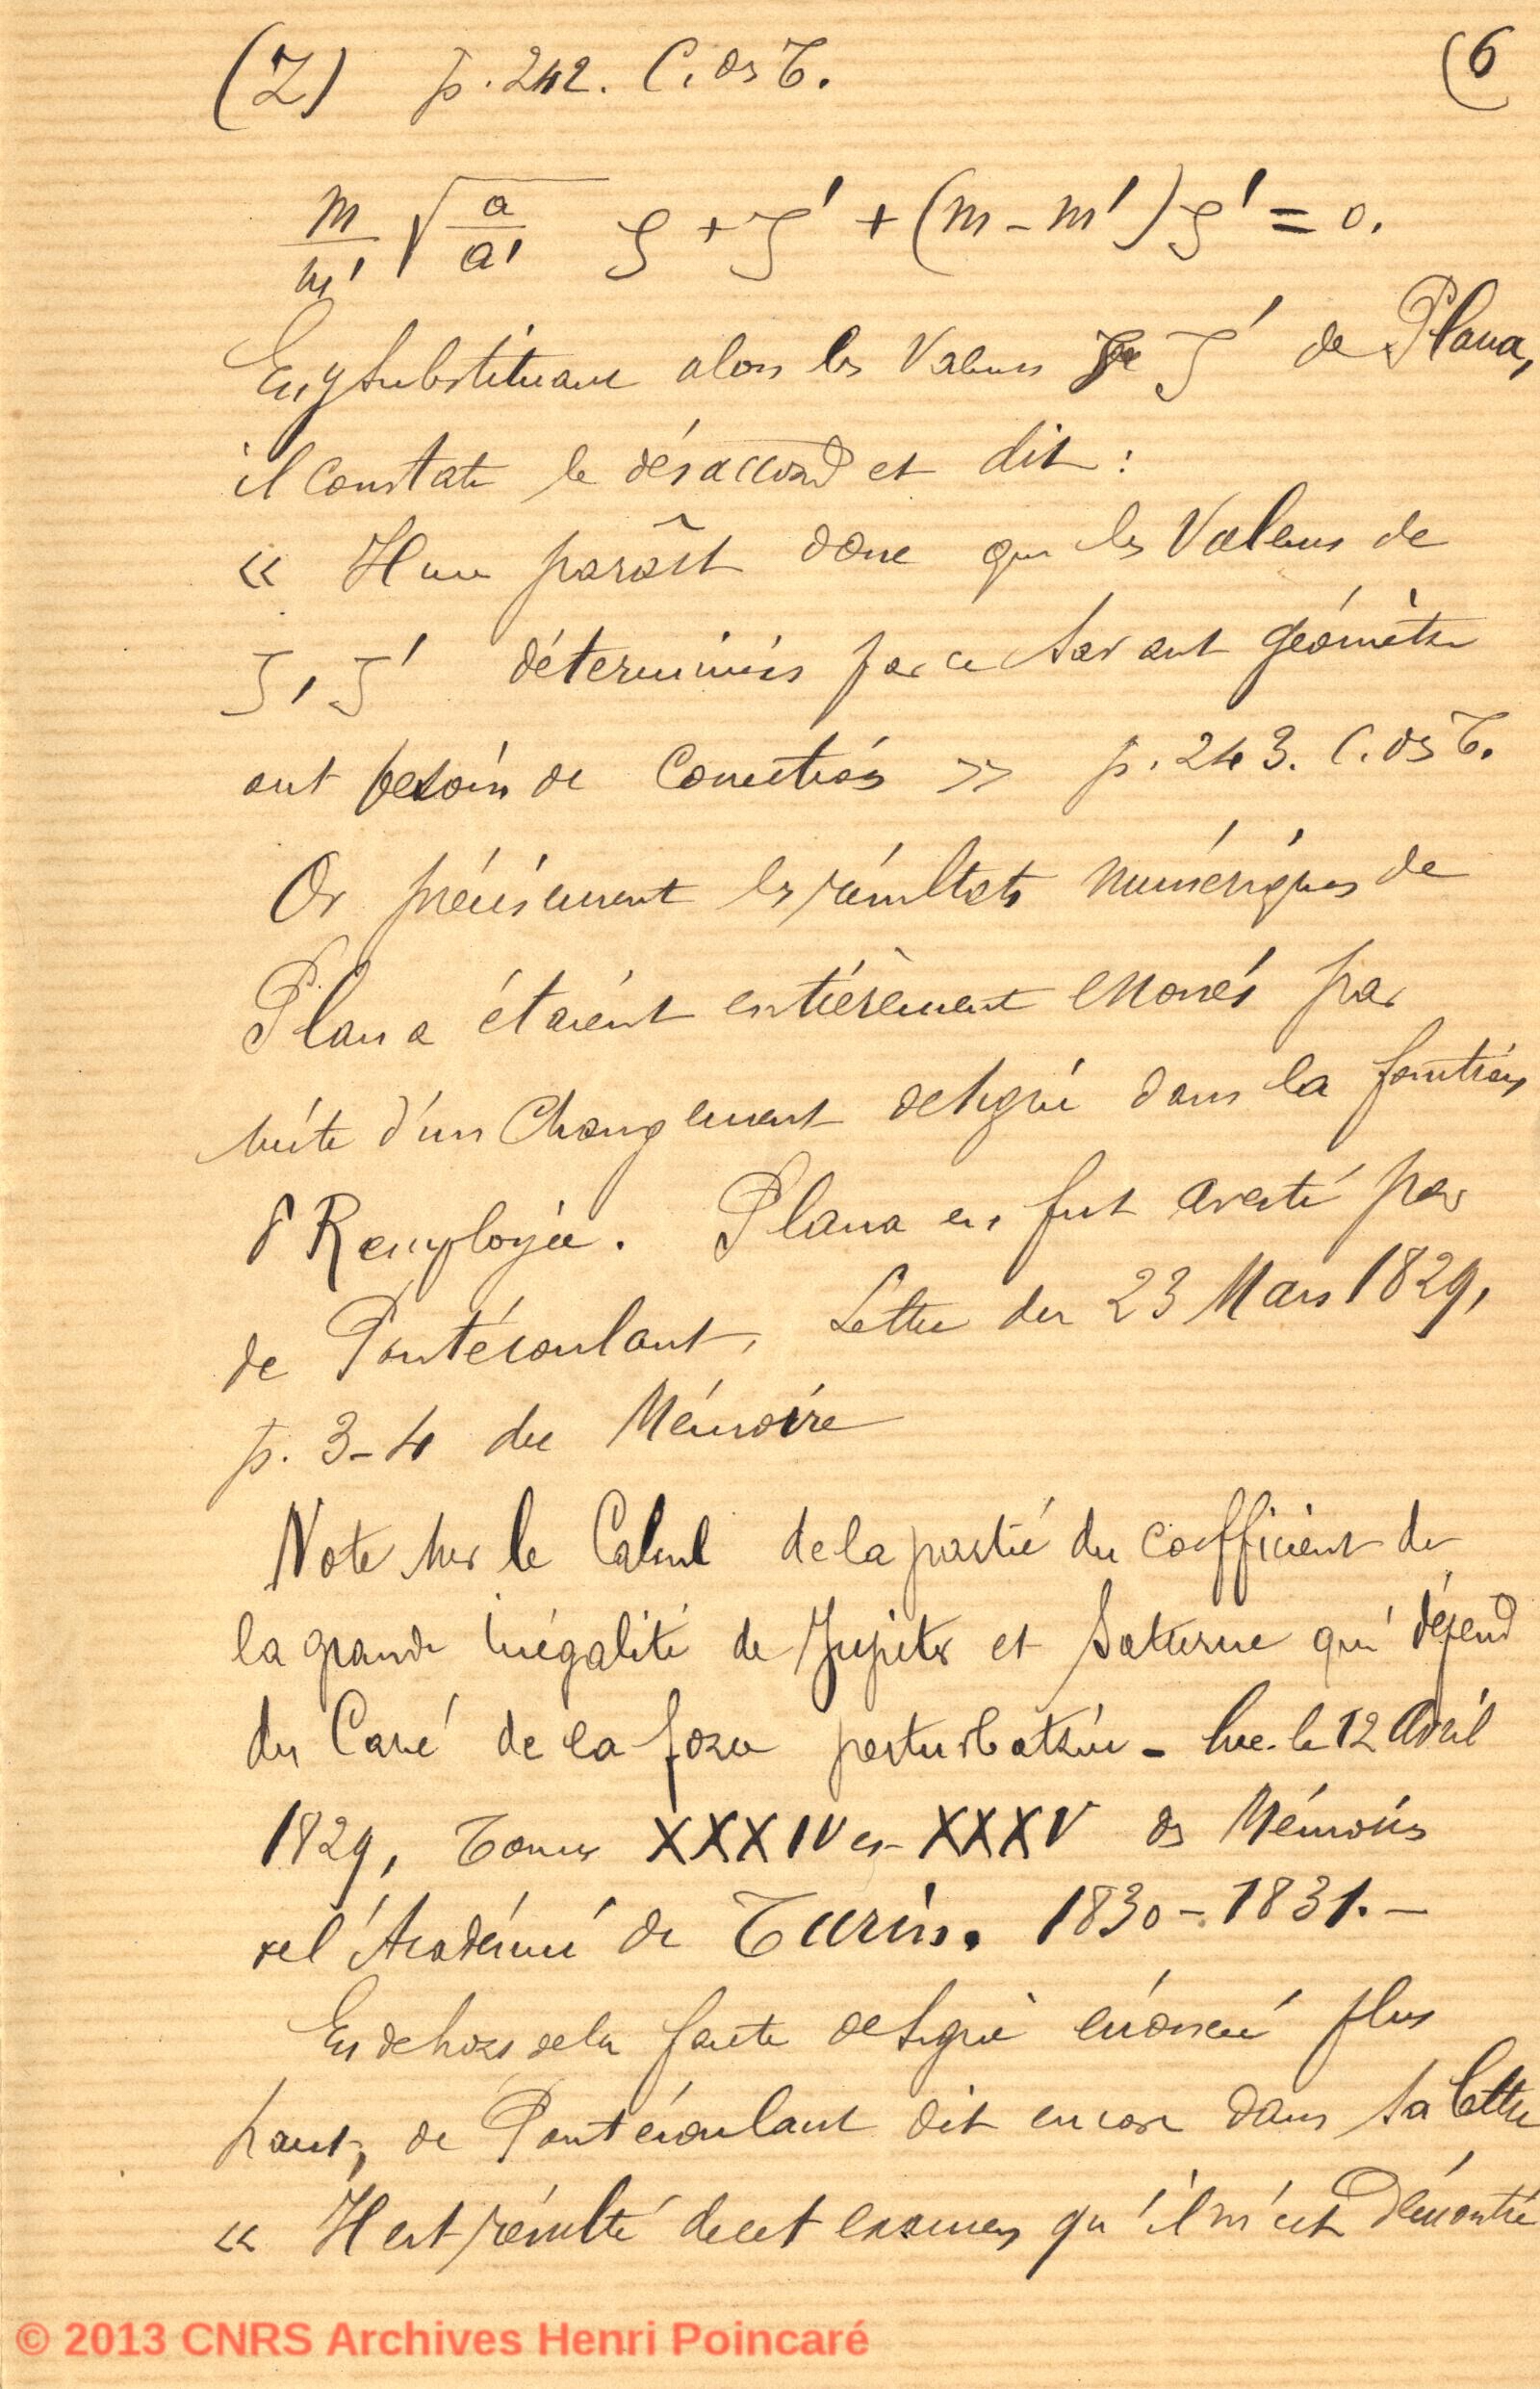 (Z) p. 242. C. ds T. (6
m/m' √a/a' ζ + ζ' + (m - m')ζ' = 0.
En y substituant alors les valeurs ζ' de Plana,
il constate le désaccord et dit :
« Il me paraît donc que les valeurs de
ζ, ζ' déterminées par ce savant géomètre
ont besoin de correction » p. 243. C. ds T.
Or précisément les résultats numériques de
Plana étaient entièrement erronés par
suite d'un changement de signe dans la fonction
δR employée. Plana en fut averti par
de Pontécoulant, Lettre du 23 Mars 1829,
p. 3-4 du Mémoire
Note sur le Calcul de la partie du coefficient de
la grande inégalité de Jupiter et Saturne qui dépend
du Carré de la force perturbatrice - lue le 12 Avril
1829, Tomes XXXIV et XXXV ds Mémoires
de l'Académie de Turin. 1830-1831. -
En dehors de la faute de signe énoncée plus
haut, de Pontécoulant dit encore dans sa lettre
« Il est résulté de cet examen qu'il m'est démontré
© 2013 CNRS Archives Henri Poincaré